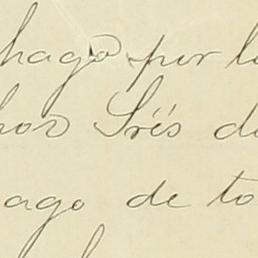 hago por l
hor Srës d
ago de to